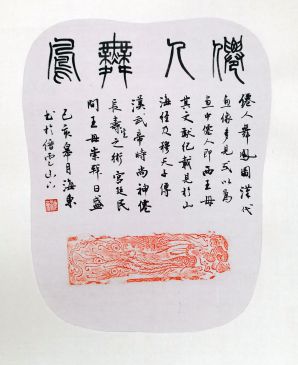 僊人舞鳳
僊人舞鳳圖漢代
畫像多見或以為
畫中僊人即西王母
其文獻記載見於山
海經及穆天子傳
漢武帝時尚神僊
長壽之術宮廷民
間王母崇拜日盛
己亥皋月海東
書於縉雲山下